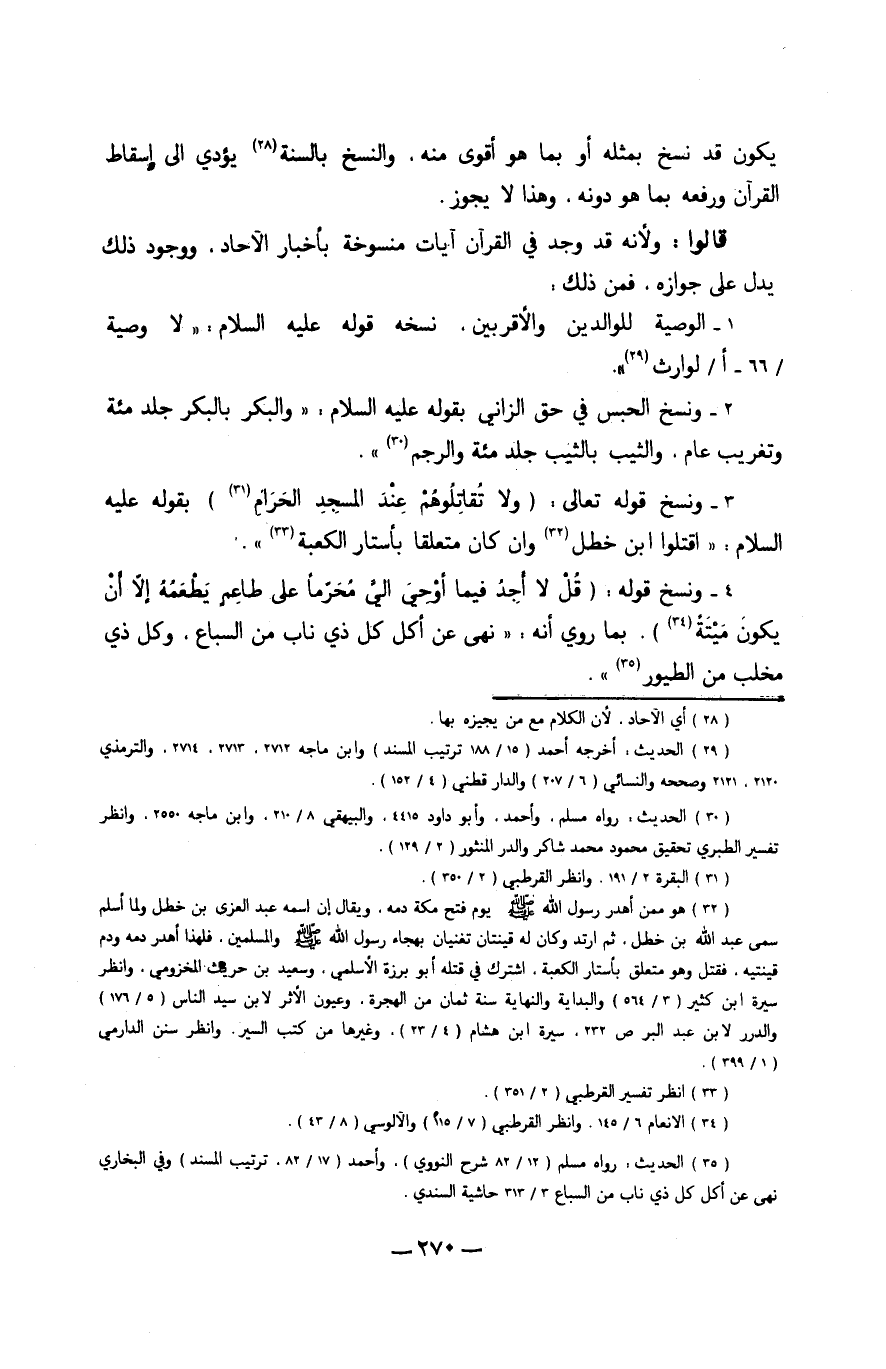 يكون قد نسخ بمثله أو بما هو أقوى منه ، والنسخ بالسنة(٢٨) يؤدي الى إسقاط
القرآن ورفعه بما هو دونه ، وهذا لا يجوز .
قالوا : ولأنه قد وجد في القرآن آيات منسوخة بأخبار الآحاد ، ووجود ذلك
يدل على جوازه ، فمن ذلك :
١ ـ الوصية للوالدين والأقربين ، نسخه قوله عليه السلام : « لا وصية
/ ٦٦ ـ أ / لوارث(٢٩)».
٢ ـ ونسخ الحبس في حق الزاني بقوله عليه السلام : « والبكر بالبكر جلد مئة
وتغريب عام ، والثيب بالثيب جلد مئة والرجم(٣٠) » .
٣ ـ ونسخ قوله تعالى : ( ولا تُقاتِلُوهُمْ عِنْدَ المسجِدِ الحَرَامِ(٣١) ) بقوله عليه
السلام : « اقتلوا ابن خطل(٣٢) وان كان متعلقا بأستار الكعبة(٣٣) » .
٤ ـ ونسخ قوله : ( قُلْ لا أَجِدُ فيما أوْحِيَ اليَّ مُحَرّماً على طاعِمٍ يَطْعَمُهُ إلّا أنْ
يكونَ مَيْتَةً(٣٤) ) . بما روي أنه : « نهى عن أكل كل ذي ناب من السباع ، وكل ذي
مخلب من الطيور(٣٥) » .
( ٢٨ ) أي الآحاد ، لأن الكلام مع من يجيزه بها .
( ٢٩ ) الحديث : أخرجه أحمد ( ١٥ / ١٨٨ ترتيب المسند ) وابن ماجه ٢٧١٢ ، ٢٧١٣ ، ٢٧١٤ ، والترمذي
٢١٢٠ ، ٢١٢١ وصححه والنسائي ( ٦ / ٢٠٧ ) والدار قطني ( ٤ / ١٥٢ ) .
( ٣٠ ) الحديث : رواه مسلم ، وأحمد ، وأبو داود ٤٤١٥ ، والبيهقي ٨ / ٢١٠ ، وابن ماجه ٢٥٥٠ ، وانظر
تفسير الطبري تحقيق محمود محمد شاكر والدر المنثور ( ٢ / ١٢٩ ) .
( ٣١ ) البقرة ٢ / ١٩١ ، وانظر القرطبي ( ٢ / ٣٥٠ ) .
( ٣٢ ) هو ممن أهدر رسول الله ﷺ يوم فتح مكة دمه ، ويقال إن اسمه عبد العزى بن خطل ولما أسلم
سمى عبد الله بن خطل ، ثم ارتد وكان له قينتان تغنيان بهجاء رسول الله ﷺ والمسلمين ، فلهذا أهدر دمه ودم
قينتيه ، فقتل وهو متعلق بأستار الكعبة ، اشترك في قتله أبو برزة الأسلمي ، وسعيد بن حريث المخزومي ، وانظر
سيرة ابن كثير ( ٣ / ٥٦٤ ) والبداية والنهاية سنة ثمان من الهجرة ، وعيون الأثر لابن سيد الناس ( ٥ / ١٧٦ )
والدرر لابن عبد البر ص ٢٣٢ ، سيرة ابن هشام ( ٤ / ٢٣ ) ، وغيرها من كتب السير ، وانظر سنن الدارمي
( ١ / ٣٩٩ ) .
( ٣٣ ) انظر تفسير القرطبي ( ٢ / ٣٥١ ) .
( ٣٤ ) الانعام ٦ / ١٤٥ . وانظر القرطبي ( ٧ / ) والآلوسي ( ٨ / ٤٣ ) .
( ٣٥ ) الحديث : رواه مسلم ( ١٢ / ٨٢ شرح النووي ) ، وأحمد ( ١٧ / ٨٢ ، ترتيب المسند ) وفي البخاري
نهى عن أكل كل ذي ناب من السباع ٣ / ٣١٣ حاشية السندي .
— ٢٧٠ —